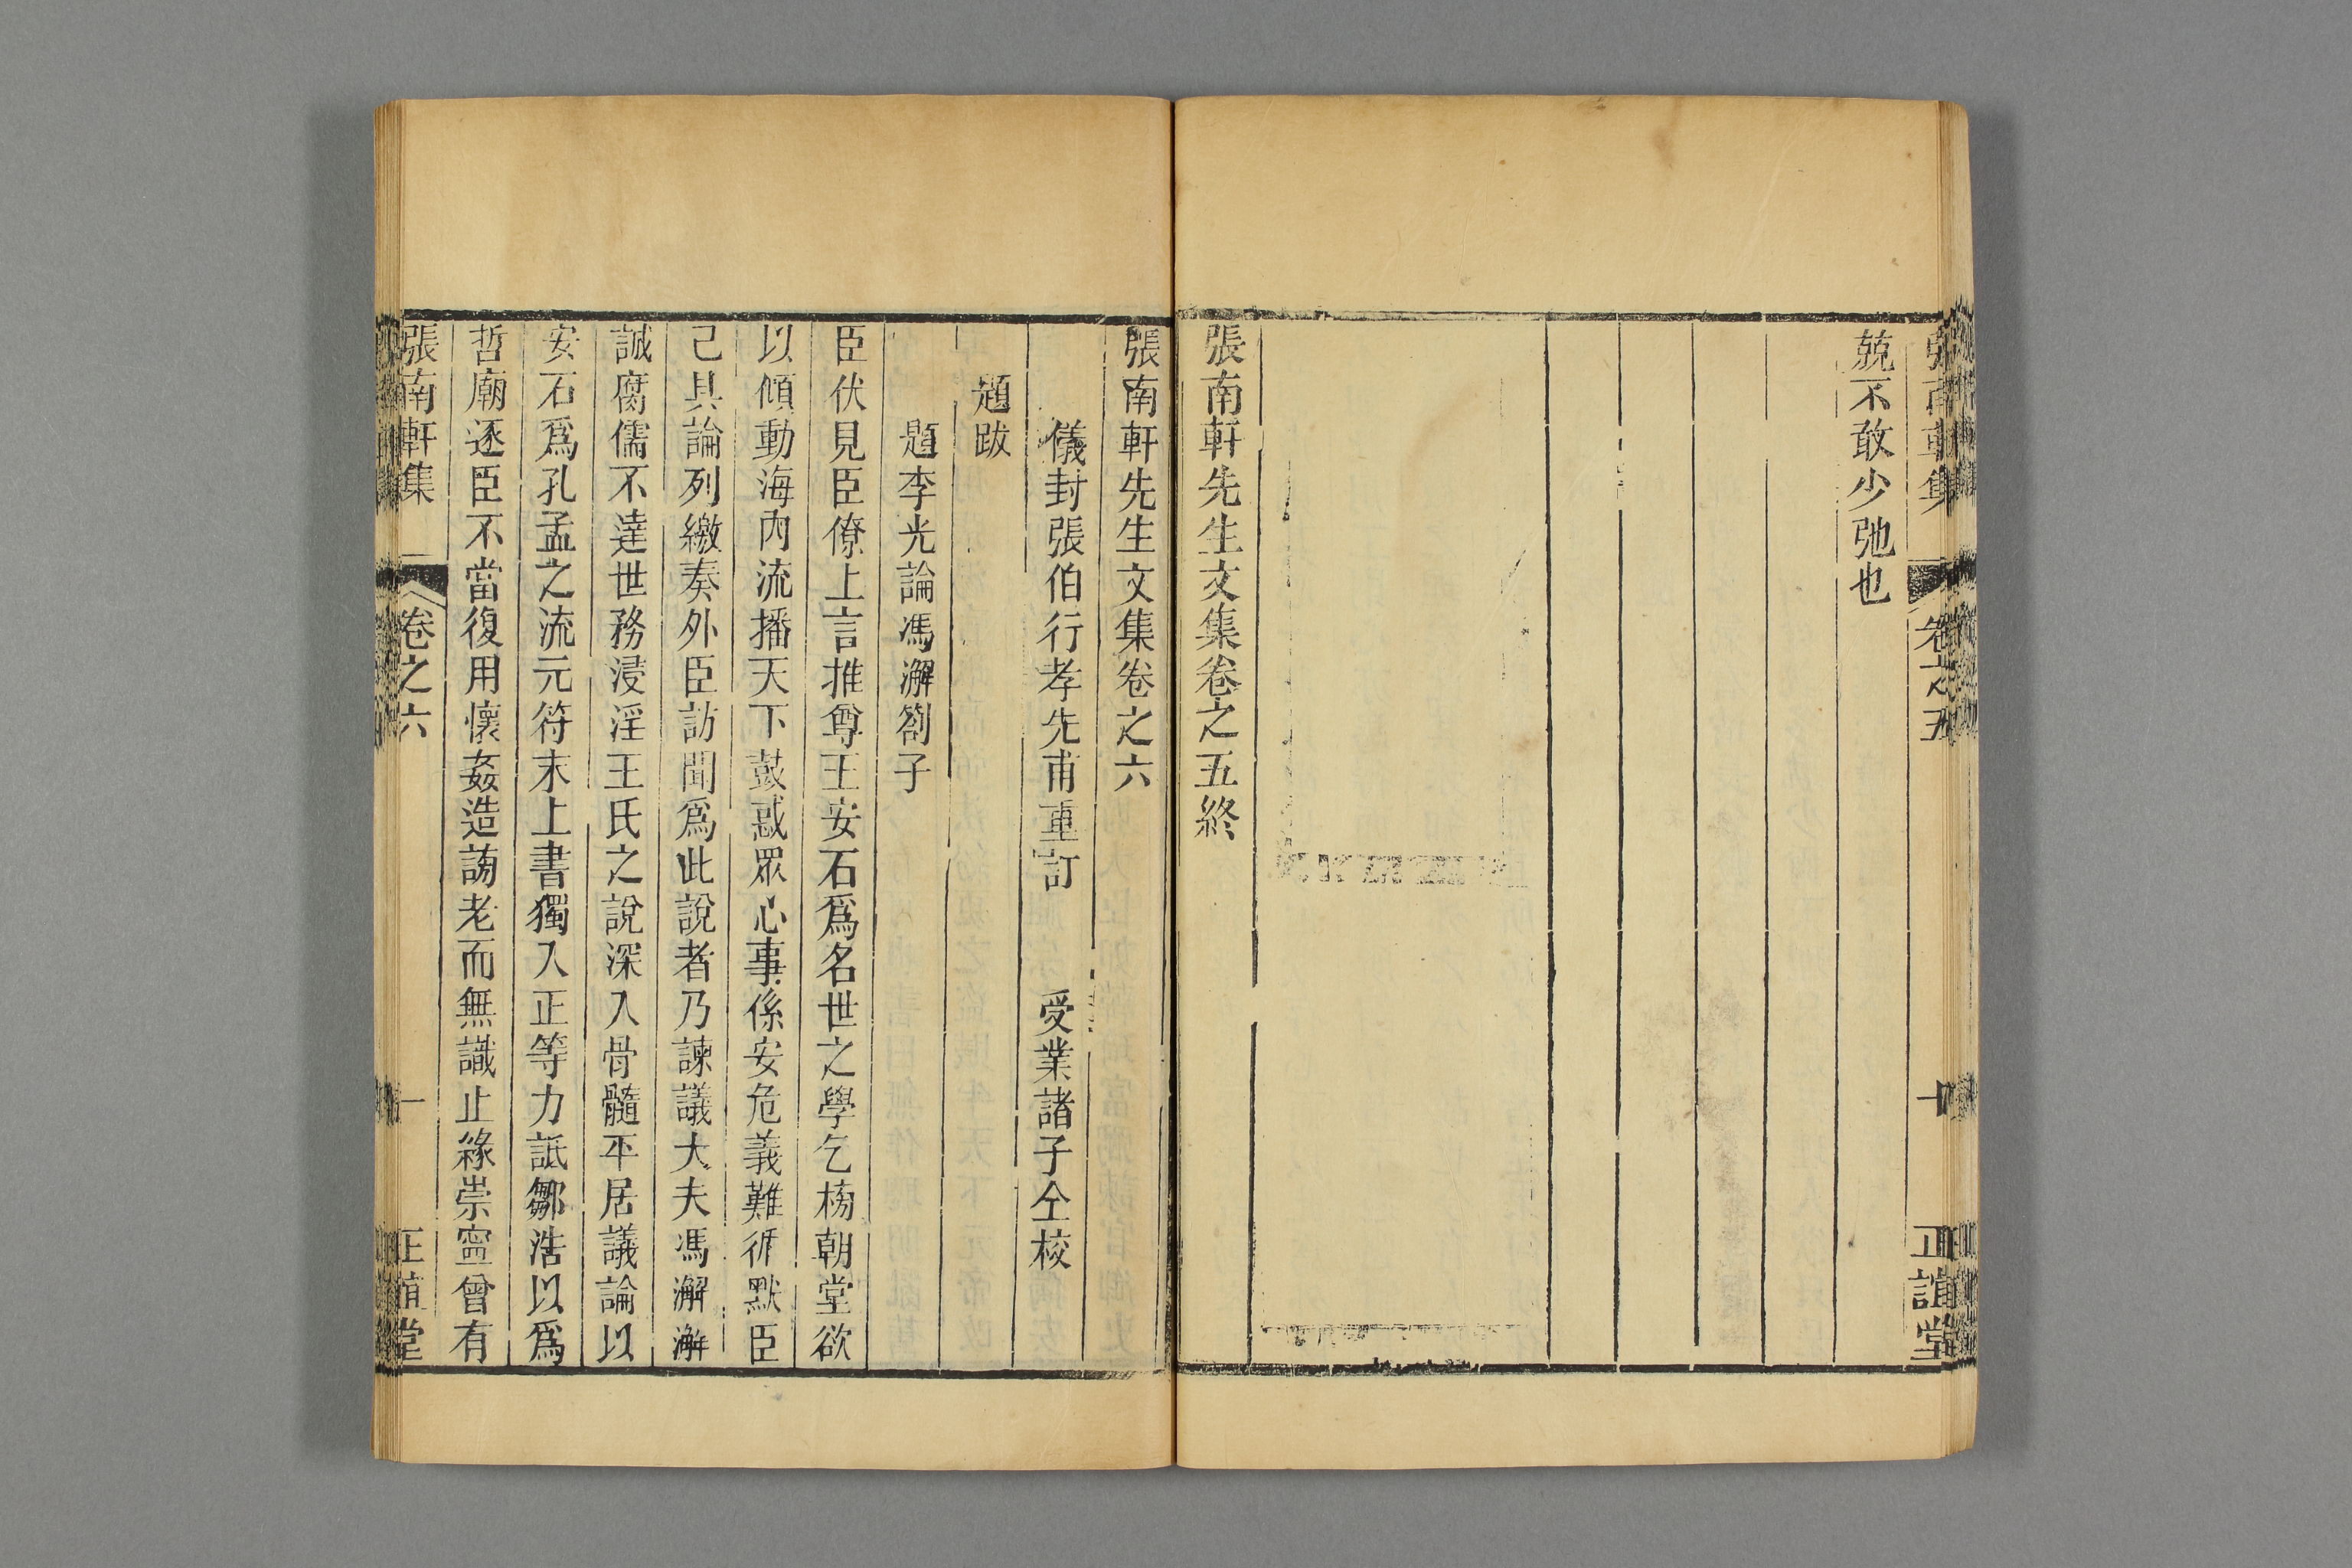 張南軒集 卷之五 十 正誼堂
兢不敢少弛也
張南軒先生文集卷之五終
張南軒先生文集卷之六
儀封張伯行孝先甫重訂 受業諸子仝校
題跋
題李光論馮澥劄子
臣伏見臣僚上言推尊王安石爲名世之學乞榜朝堂欲
以傾動海內流播天下鼓惑眾心事係安危義難循默臣
己具論列繳奏外臣訪聞爲此說者乃諫議大夫馮澥澥
誠腐儒不達世務浸淫王氏之說深入骨髓平居議論以
安石爲孔孟之流元符末上書獨入正等力詆鄒浩以爲
哲廟逐臣不當復用懷姦造謗老而無識止緣崇寧曾有
張南軒集 卷之六 一 正誼堂